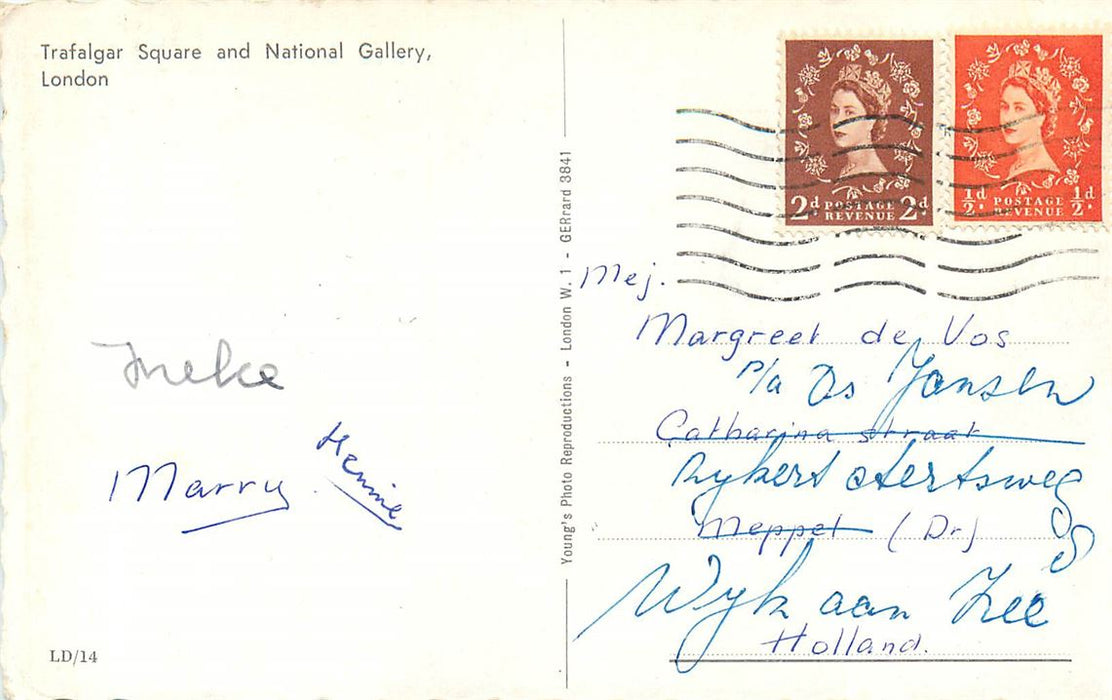 Trafalgar Square and National Gallery,
London
Ineke
Marry
Hennie
LD/14
Young's Photo Reproductions - London W. 1 - GERrard 3841
2d POSTAGE 2d
REVENUE
½d POSTAGE ½d
REVENUE
Mej.
Margreet de Vos
p/a Ds Jansen
Catharina straat
Rykert Aertsweg
8
Meppel (Dr)
Wyk aan Zee
Holland.